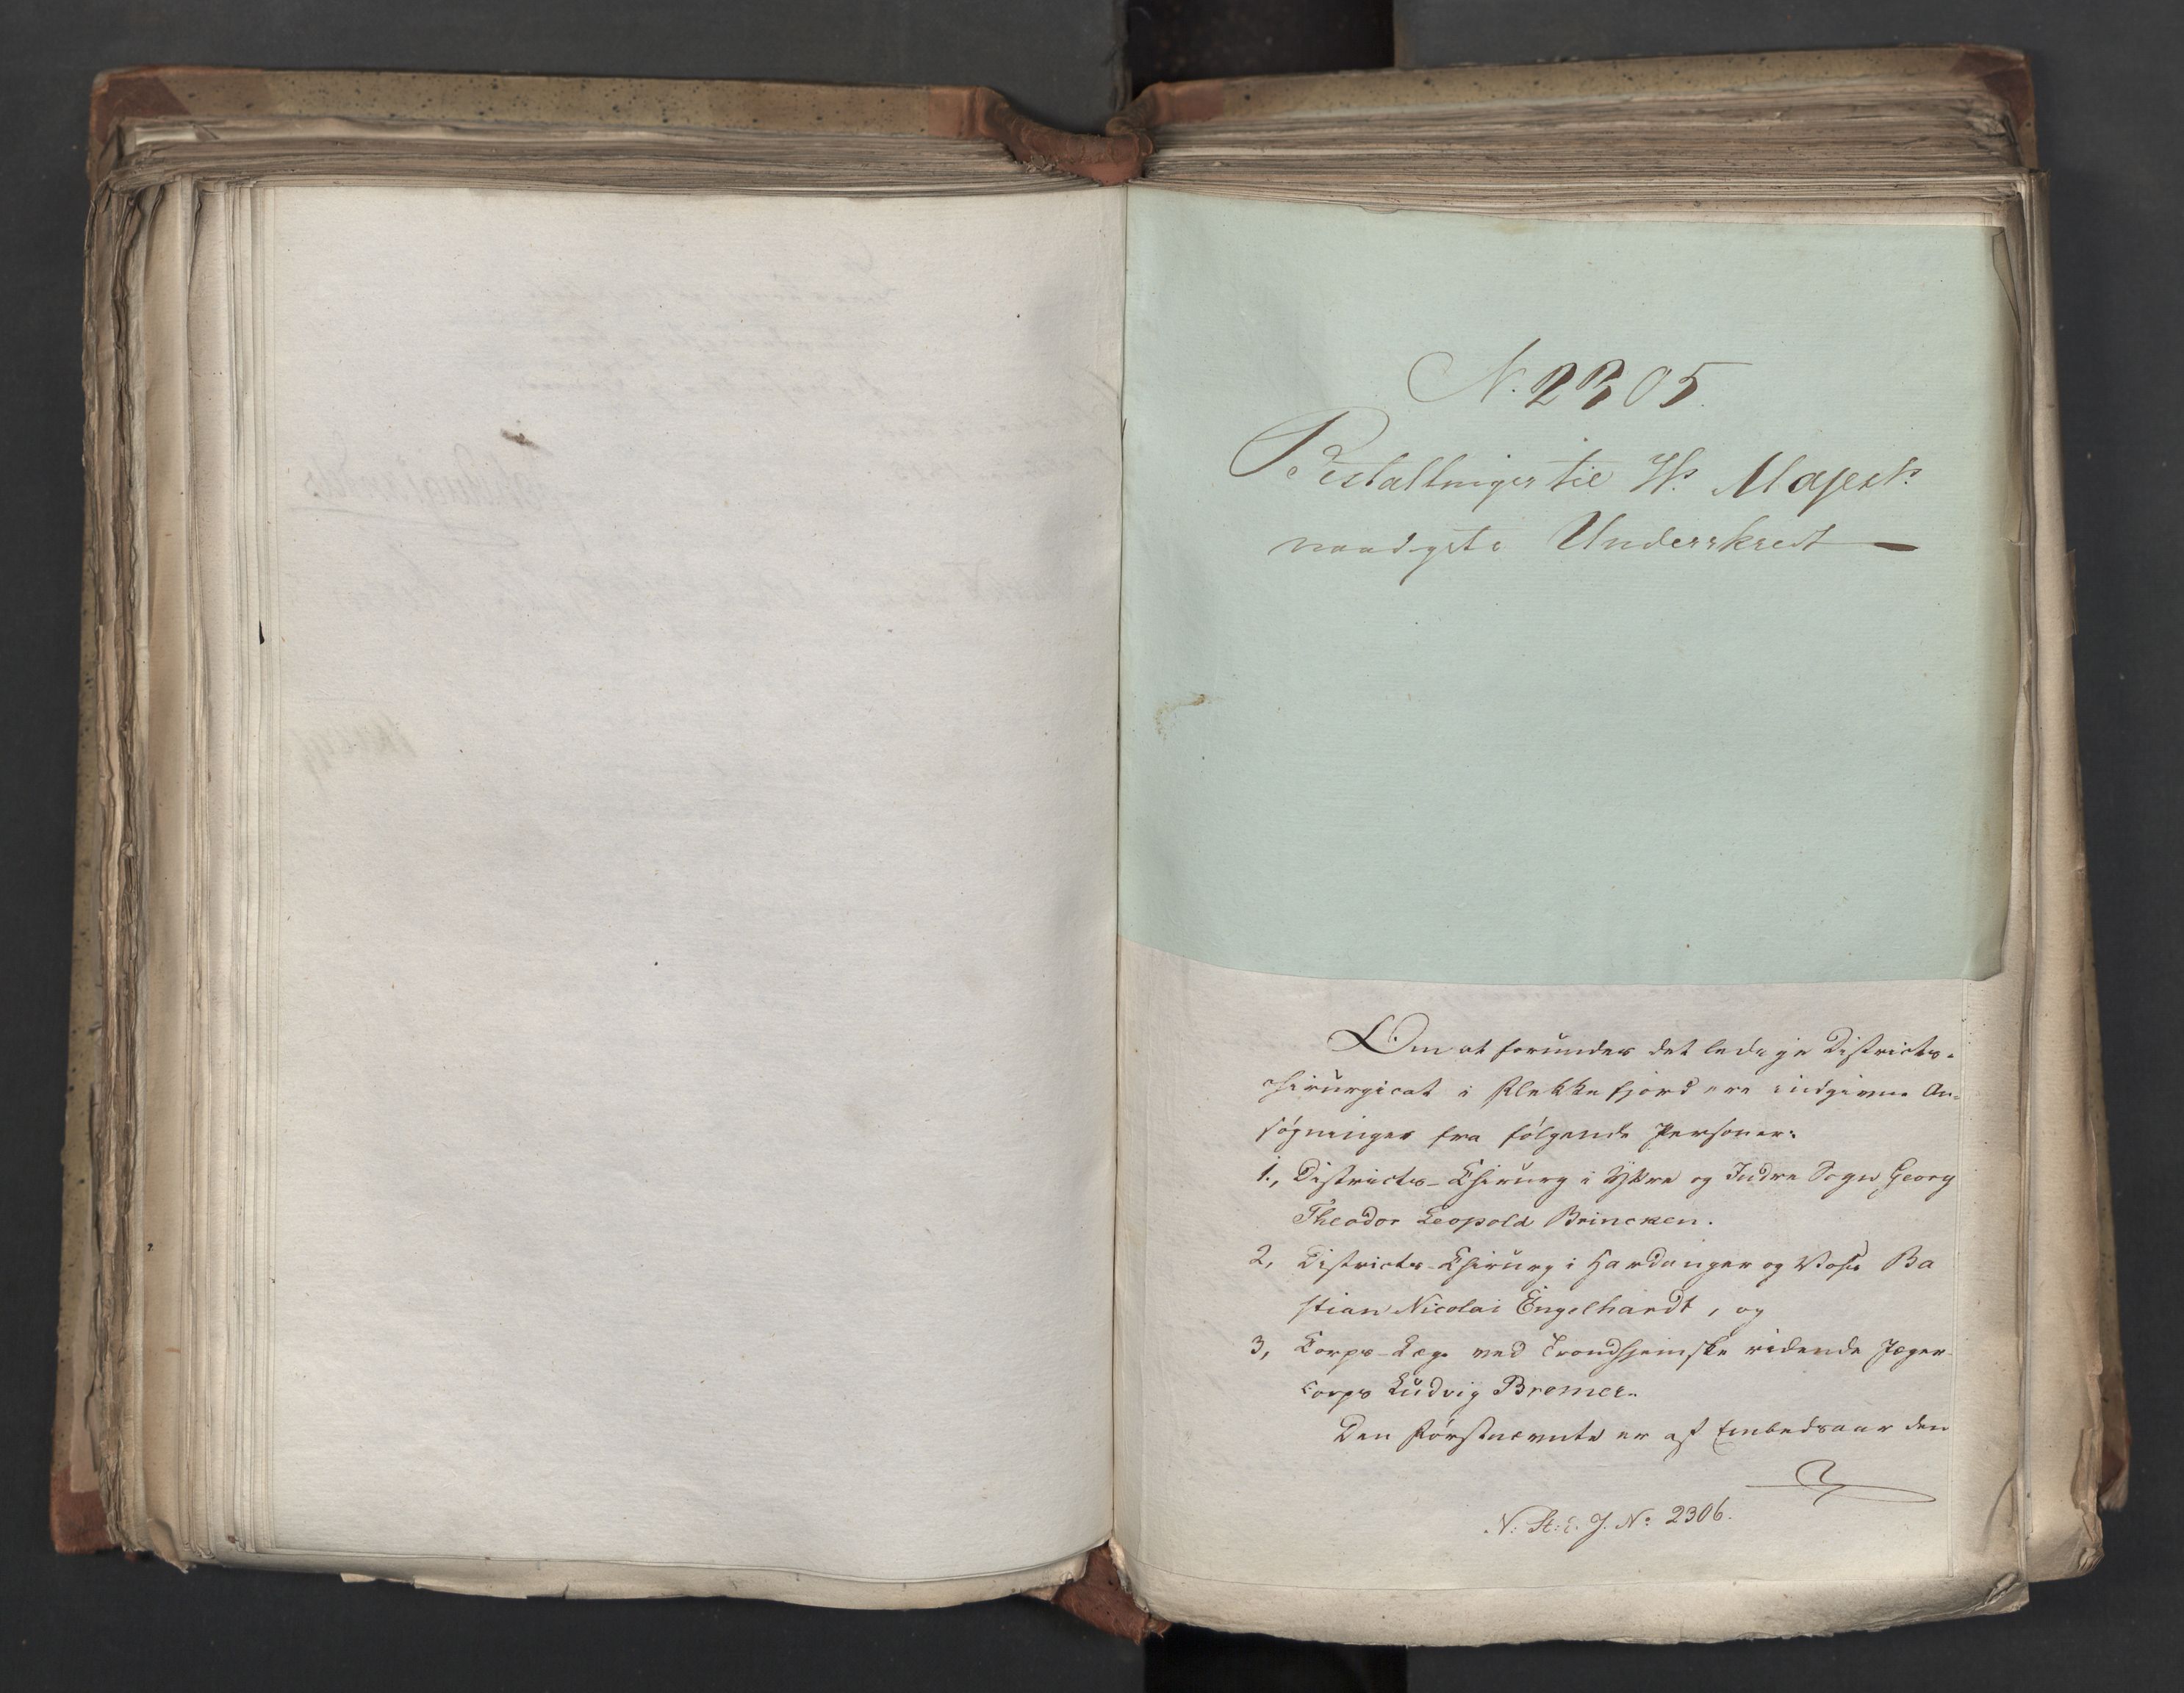 N. 2305.
Bestallinger til Hs Majests
naadigste Underskrift
Om at forundes det ledige Districts-
chirurgicat i Flekkefjord ere indgivne An-
søgninger fra følgende Personer:
1., Districts-Chirurg i Ytre og Indre Sogn, Georg
Theodor Leopold Brincken.
2, Districts-Chirurg i Hardanger og Voss Ba
stian Nicolai Engelhardt, og
3, Corps-Læge ved Trondhjemske ridende Jæger-
corps Ludvig Bremer.
Den førstnævnte er af Embedsaar den
N: St: S. J. No 2306.